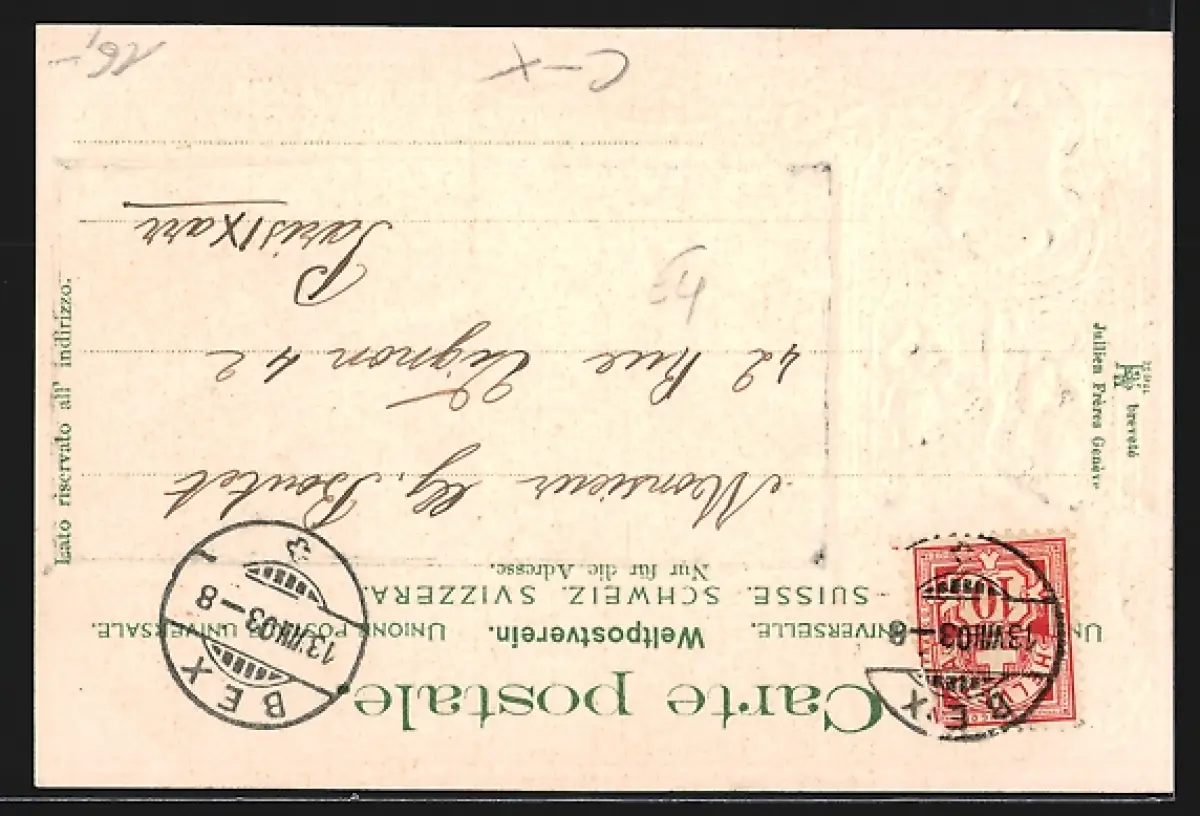 Carte postale.
UNION POSTALE UNIVERSELLE. Weltpostverein. UNIONE POSTALE UNIVERSALE.
SUISSE. SCHWEIZ. SVIZZERA.
Nur für die Adresse.
BEX
13.VIII.03–8
10
BEX
13.VIII.03–8
Monsieur Boutet
42 Rue Vignon 42
Paris IX arr
Lato riservato all' indirizzo.
Jullien Frères Genève
breveté
C–X
16,-